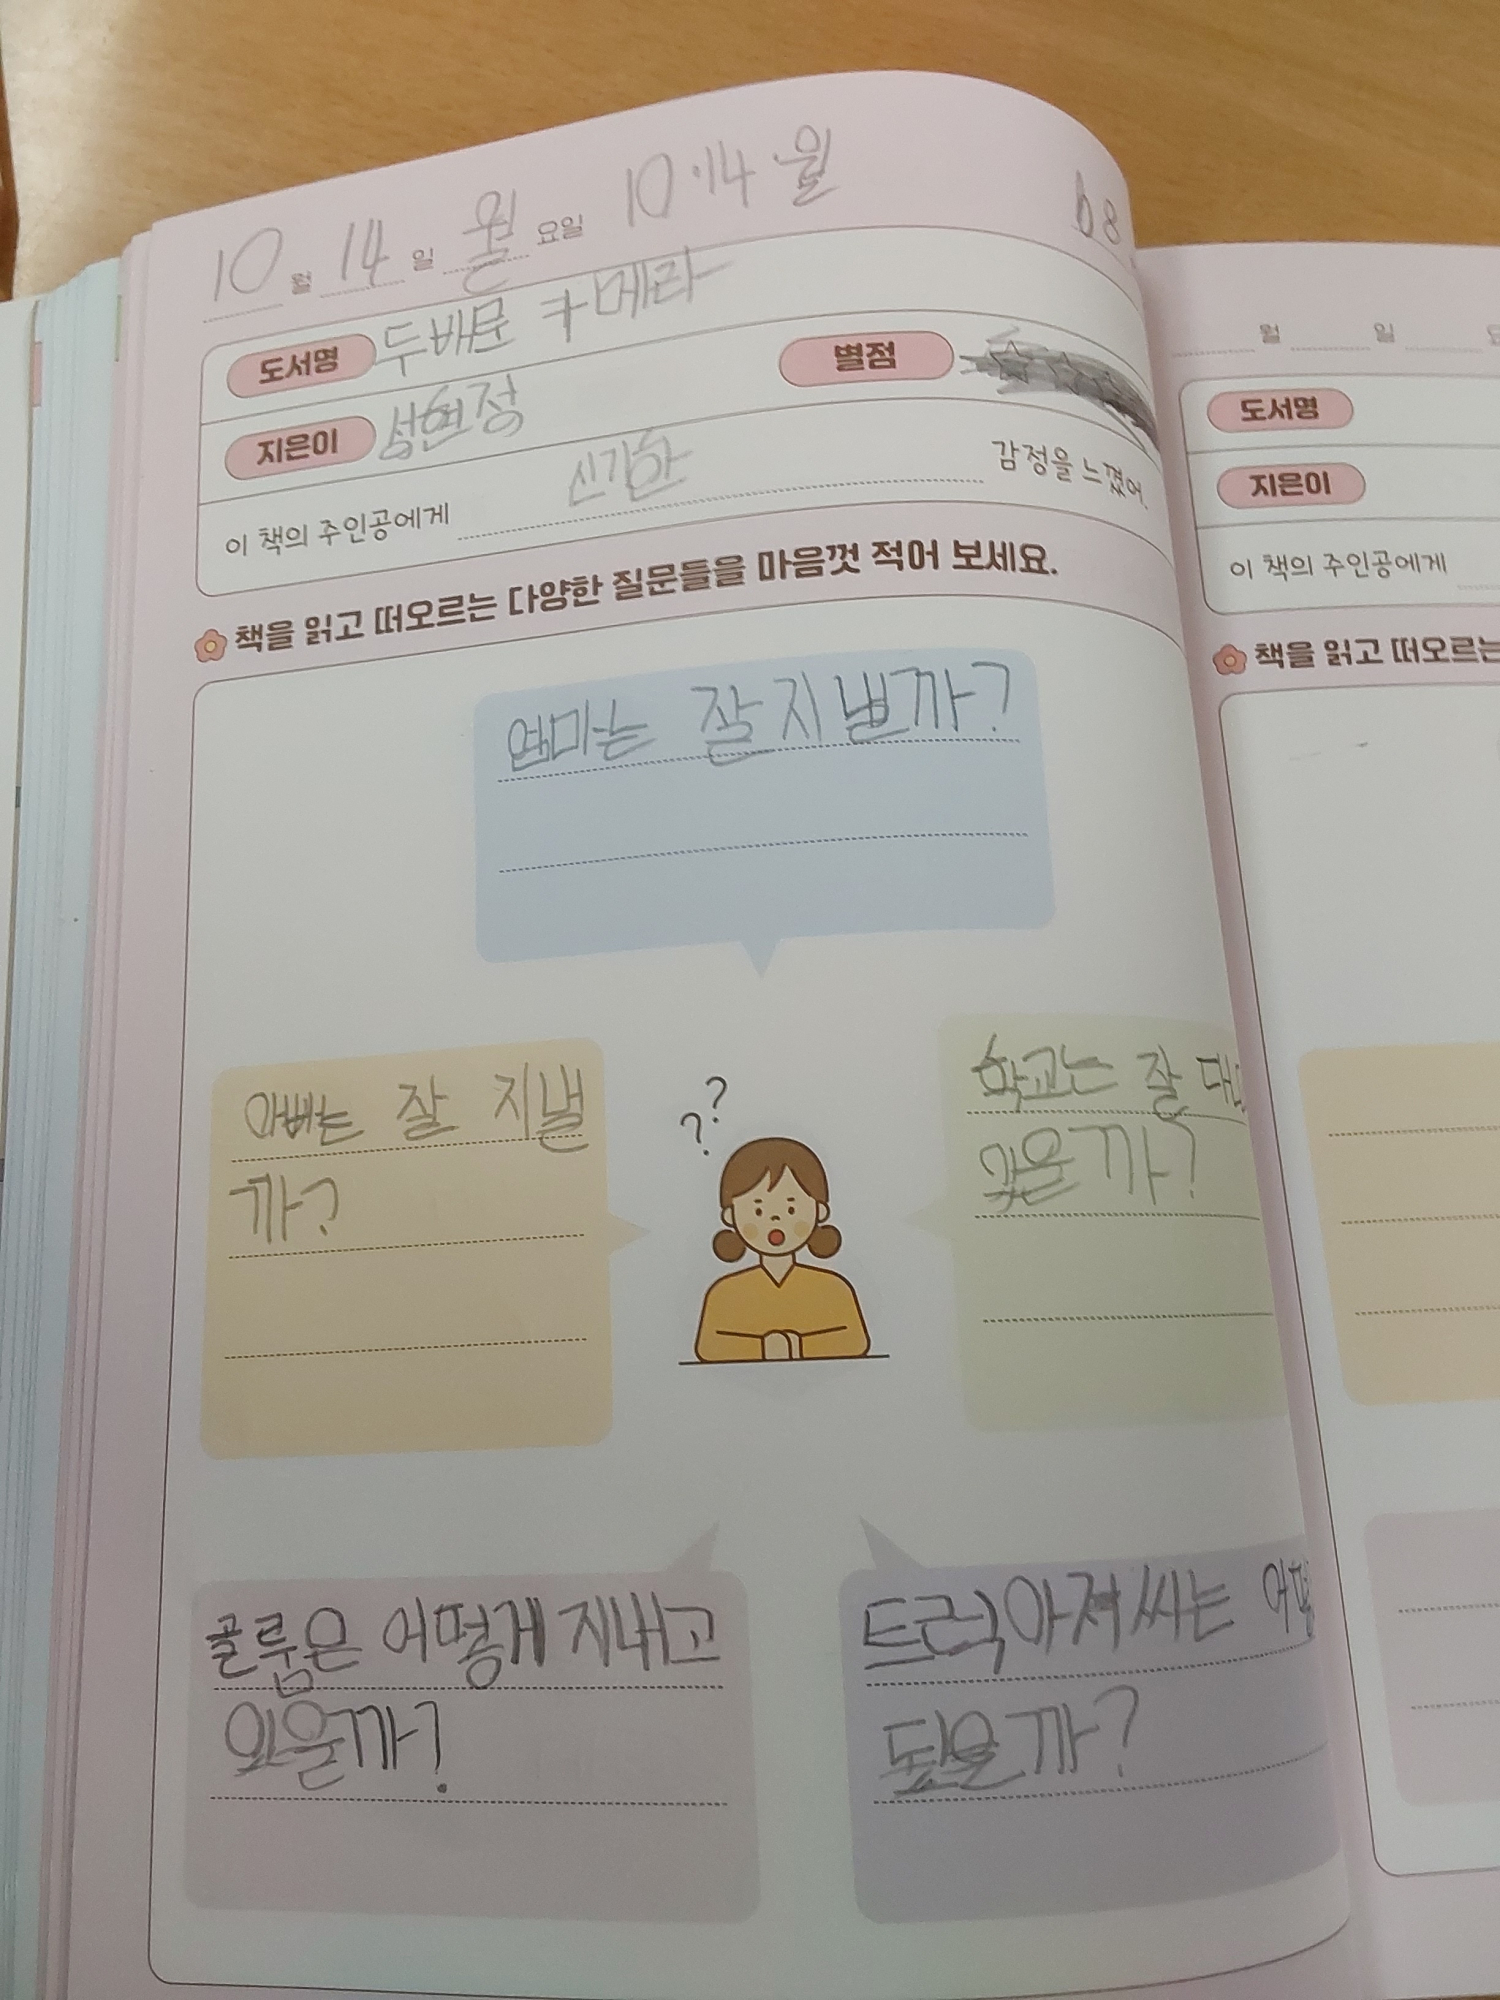 10월 14일 월요일 10.14.월
68
도서명 두배문 카메라
지은이 성현정 별점
이 책의 주인공에게 신기한 감정을 느꼈어.
책을 읽고 떠오르는 다양한 질문들을 마음껏 적어 보세요.
엄마는 잘 지낼까?
아빠는 잘 지낼
까?
학교는 잘
있을까?
? ?
콜룹은 어떻게 지내고
있을까?
트릭아져씨는
됬을까?
월 일
도서명
지은이
이 책의 주인공에게
책을 읽고 떠오르는